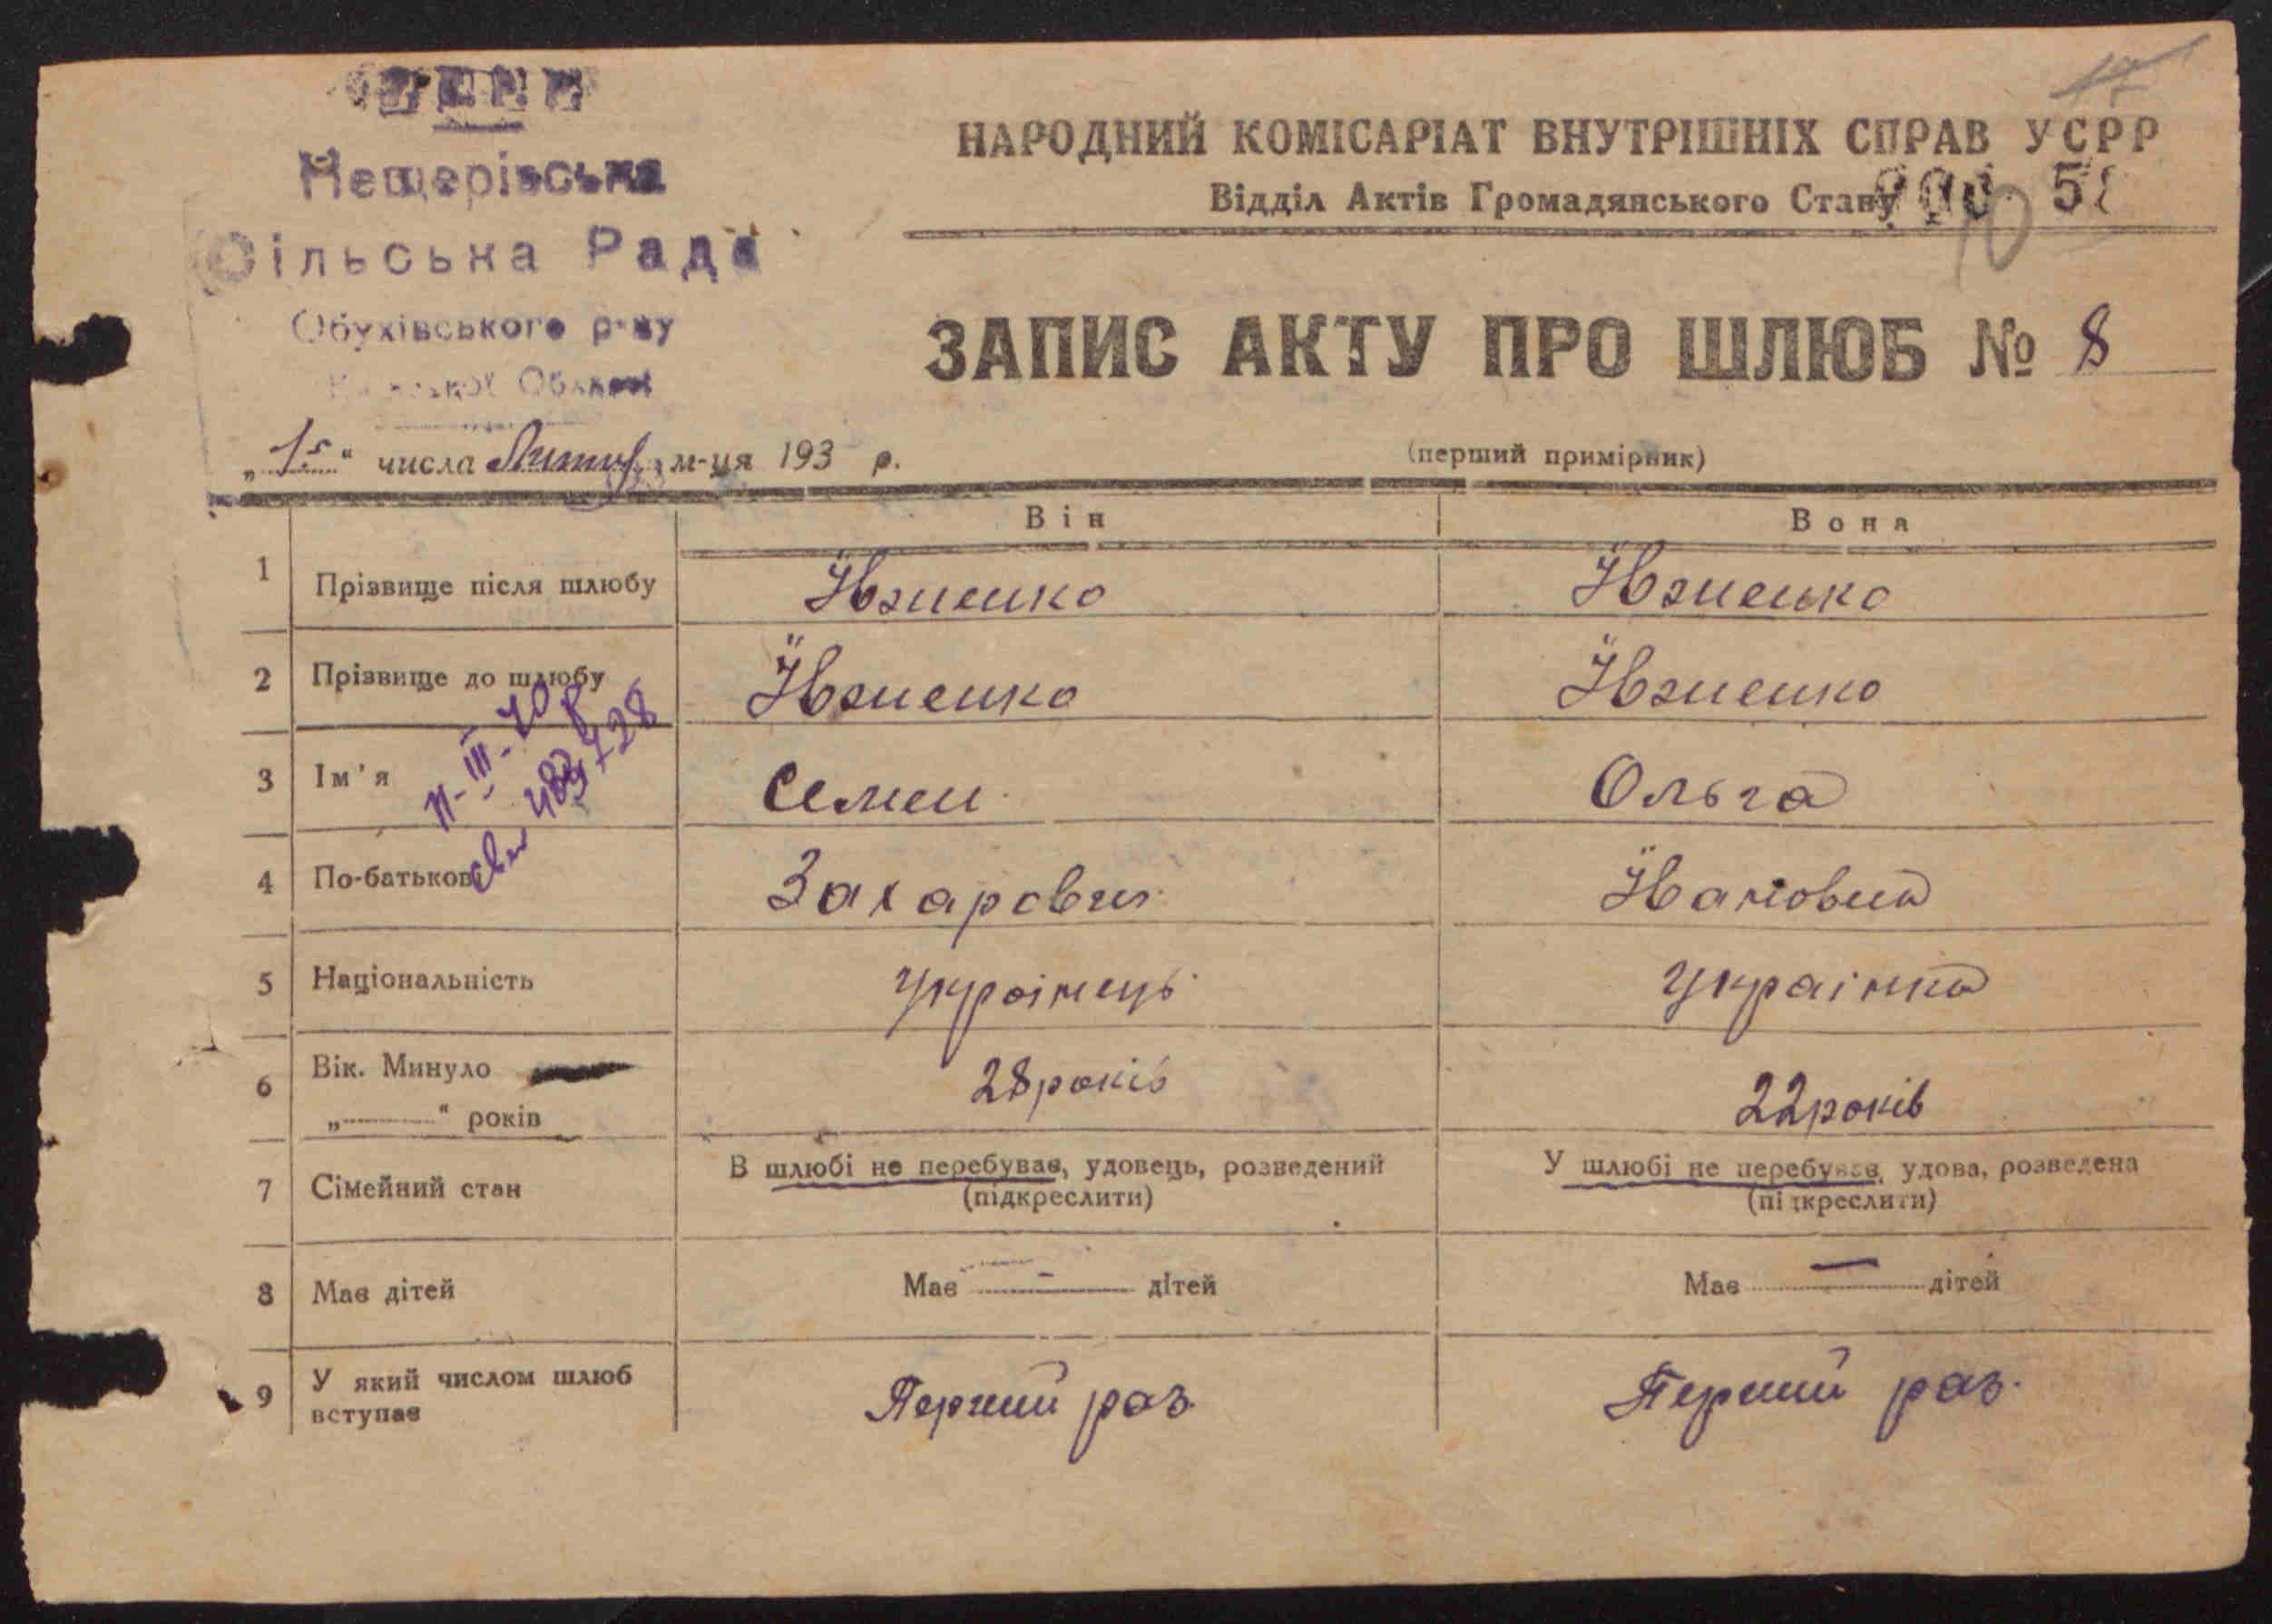 УСРР
Нещерівська
Сільська Рада
Обухівського р-ну
Київської Області
НАРОДНИЙ КОМІСАРІАТ ВНУТРІШНІХ СПРАВ УСРР
Відділ Актів Громадянського Стану
10
ЗАПИС АКТУ ПРО ШЛЮБ № 8
„15“ числа м-ця 193 р.
(перший примірник)
Він Вона
1 Прізвище після шлюбу Ївженко Ївженко
2 Прізвище до шлюбу Ївженко Ївженко
3 Ім'я Семен Ольга
4 По-батькові Захарович Їванов
5 Національність Українець Українка
6 Вік. Минуло 28 років 22 років
„ “ років
7 Сімейний стан В шлюбі не перебував, удовець, розведений У шлюбі не перебував, удова, розведена
(підкреслити) (підкреслити)
8 Має дітей Має — дітей Має — дітей
9 У який числом шлюб Перший раз Перший раз.
вступає